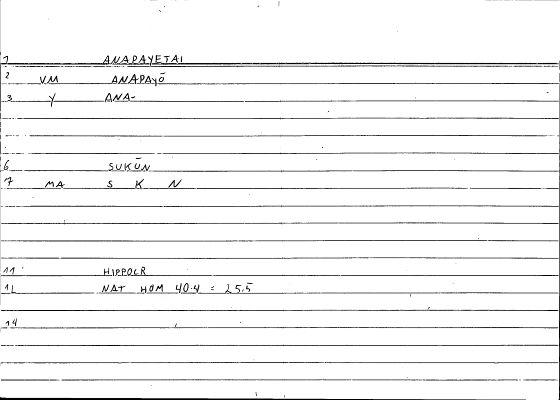 1 ANAPAYETAI
2 VM ANAPAYŌ
3 Y ANA-
6 SUKŪN
7 MA S K N
11 HIPPOCR
12 NAT HOM 40.4 = 25.5
14